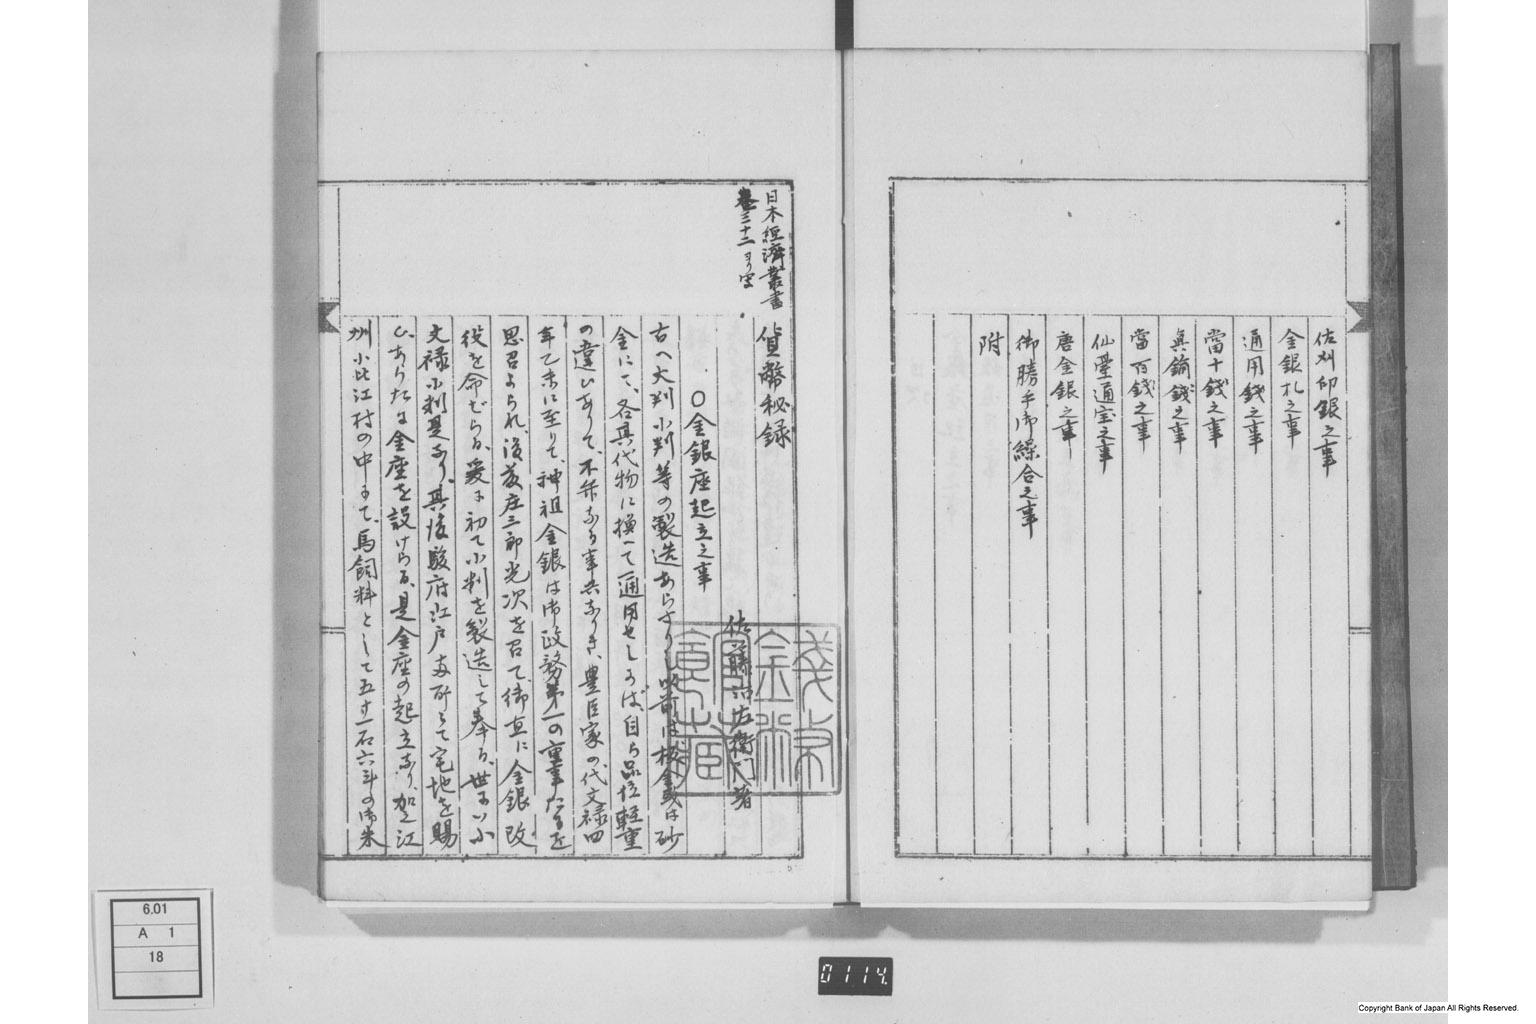 佐州印銀之事
金銀札之事
通用錢之事
當十錢之事
眞鍮錢之事
當百錢之事
仙臺通宝之事
唐金銀之事
御勝手御繰合之事
附
日本經濟叢書
卷三十二ヨリ写
貨幣秘録
佐藤治左衛門著
○金銀座起立之事
古へ大判小判等の製造あらさりし以前は板金或は砂
金にて、各其代物に換へて通用せしかば、自ら品位軽重
の違ひありて、不弁なる事共なりき、豊臣家の代文禄四
年乙未に至りて、神祖金銀は御政務第一の重事たるを
思召よられ、後藤庄三郎光次を召て、御直に金銀改
役を命ぜらる、爰に初て小判を製造して奉る、世にいふ
文禄小判是なり、其後駿府江戸両所にて宅地を賜
ひ、あらたに金座を設けらる、是金座の起立なり、加之江
州小比江村の中にて、馬飼料として五十一石六斗の御朱
6.01
A 1
18
0114
Copyright Bank of Japan All Rights Reserved.